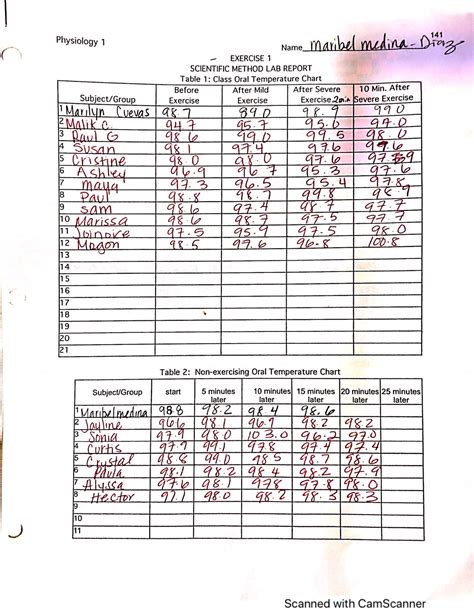 141
Physiology 1
Name Maribel medina - Diaz
EXERCISE 1
SCIENTIFIC METHOD LAB REPORT
Table 1: Class Oral Temperature Chart
Subject/Group Before Exercise After Mild Exercise After Severe Exercise 2min 10 Min. After Severe Exercise
1 Marilyn Cuevas 98.7 99.0
2 Malik C. 94.7 95.7 97.0
3 Paul G 98.6 99.0 99.5 98.0
4 Susan 98.1 97.4 97.6
5 Cristine 98.0 98.0 97.6
6 Ashley 96.9 96.7 95.3 97.6
7 Maya 97.3 96.5 95.4 97.8
8 Paul 98.8 99.8
9 Sam 98.6 97.4 98.7 97.7
10 Marissa 98.6 98.7 97.7 97.7
11 97.5 95.9 97.5 98.0
12 Megan 98.5 96.8 100.8
13
14
15
16
17
18
19
20
21
Table 2: Non-exercising Oral Temperature Chart
Subject/Group start 5 minutes later 10 minutes later 15 minutes later 20 minutes later 25 minutes later
1 Maribel medina 98.8 98.2 98.4 98.6
2 Jayline 96.6 98.1 96.9 98.2 98.2
3 Sonia 97.9 98.0 103.0 96.2 97.0
4 Curtis 97.7 99.1 97.8 97.4
5 Crystal 98.8 99.0 98.5 98.7 98.6
6 Paula 98.1 98.2 98.4 98.2 97.9
7 Alyssa 97.6 98.1 97.8 98.0
8 Hector 97.1 98.0 98.2 98.3 98.3
9
10
11
Scanned with CamScanner